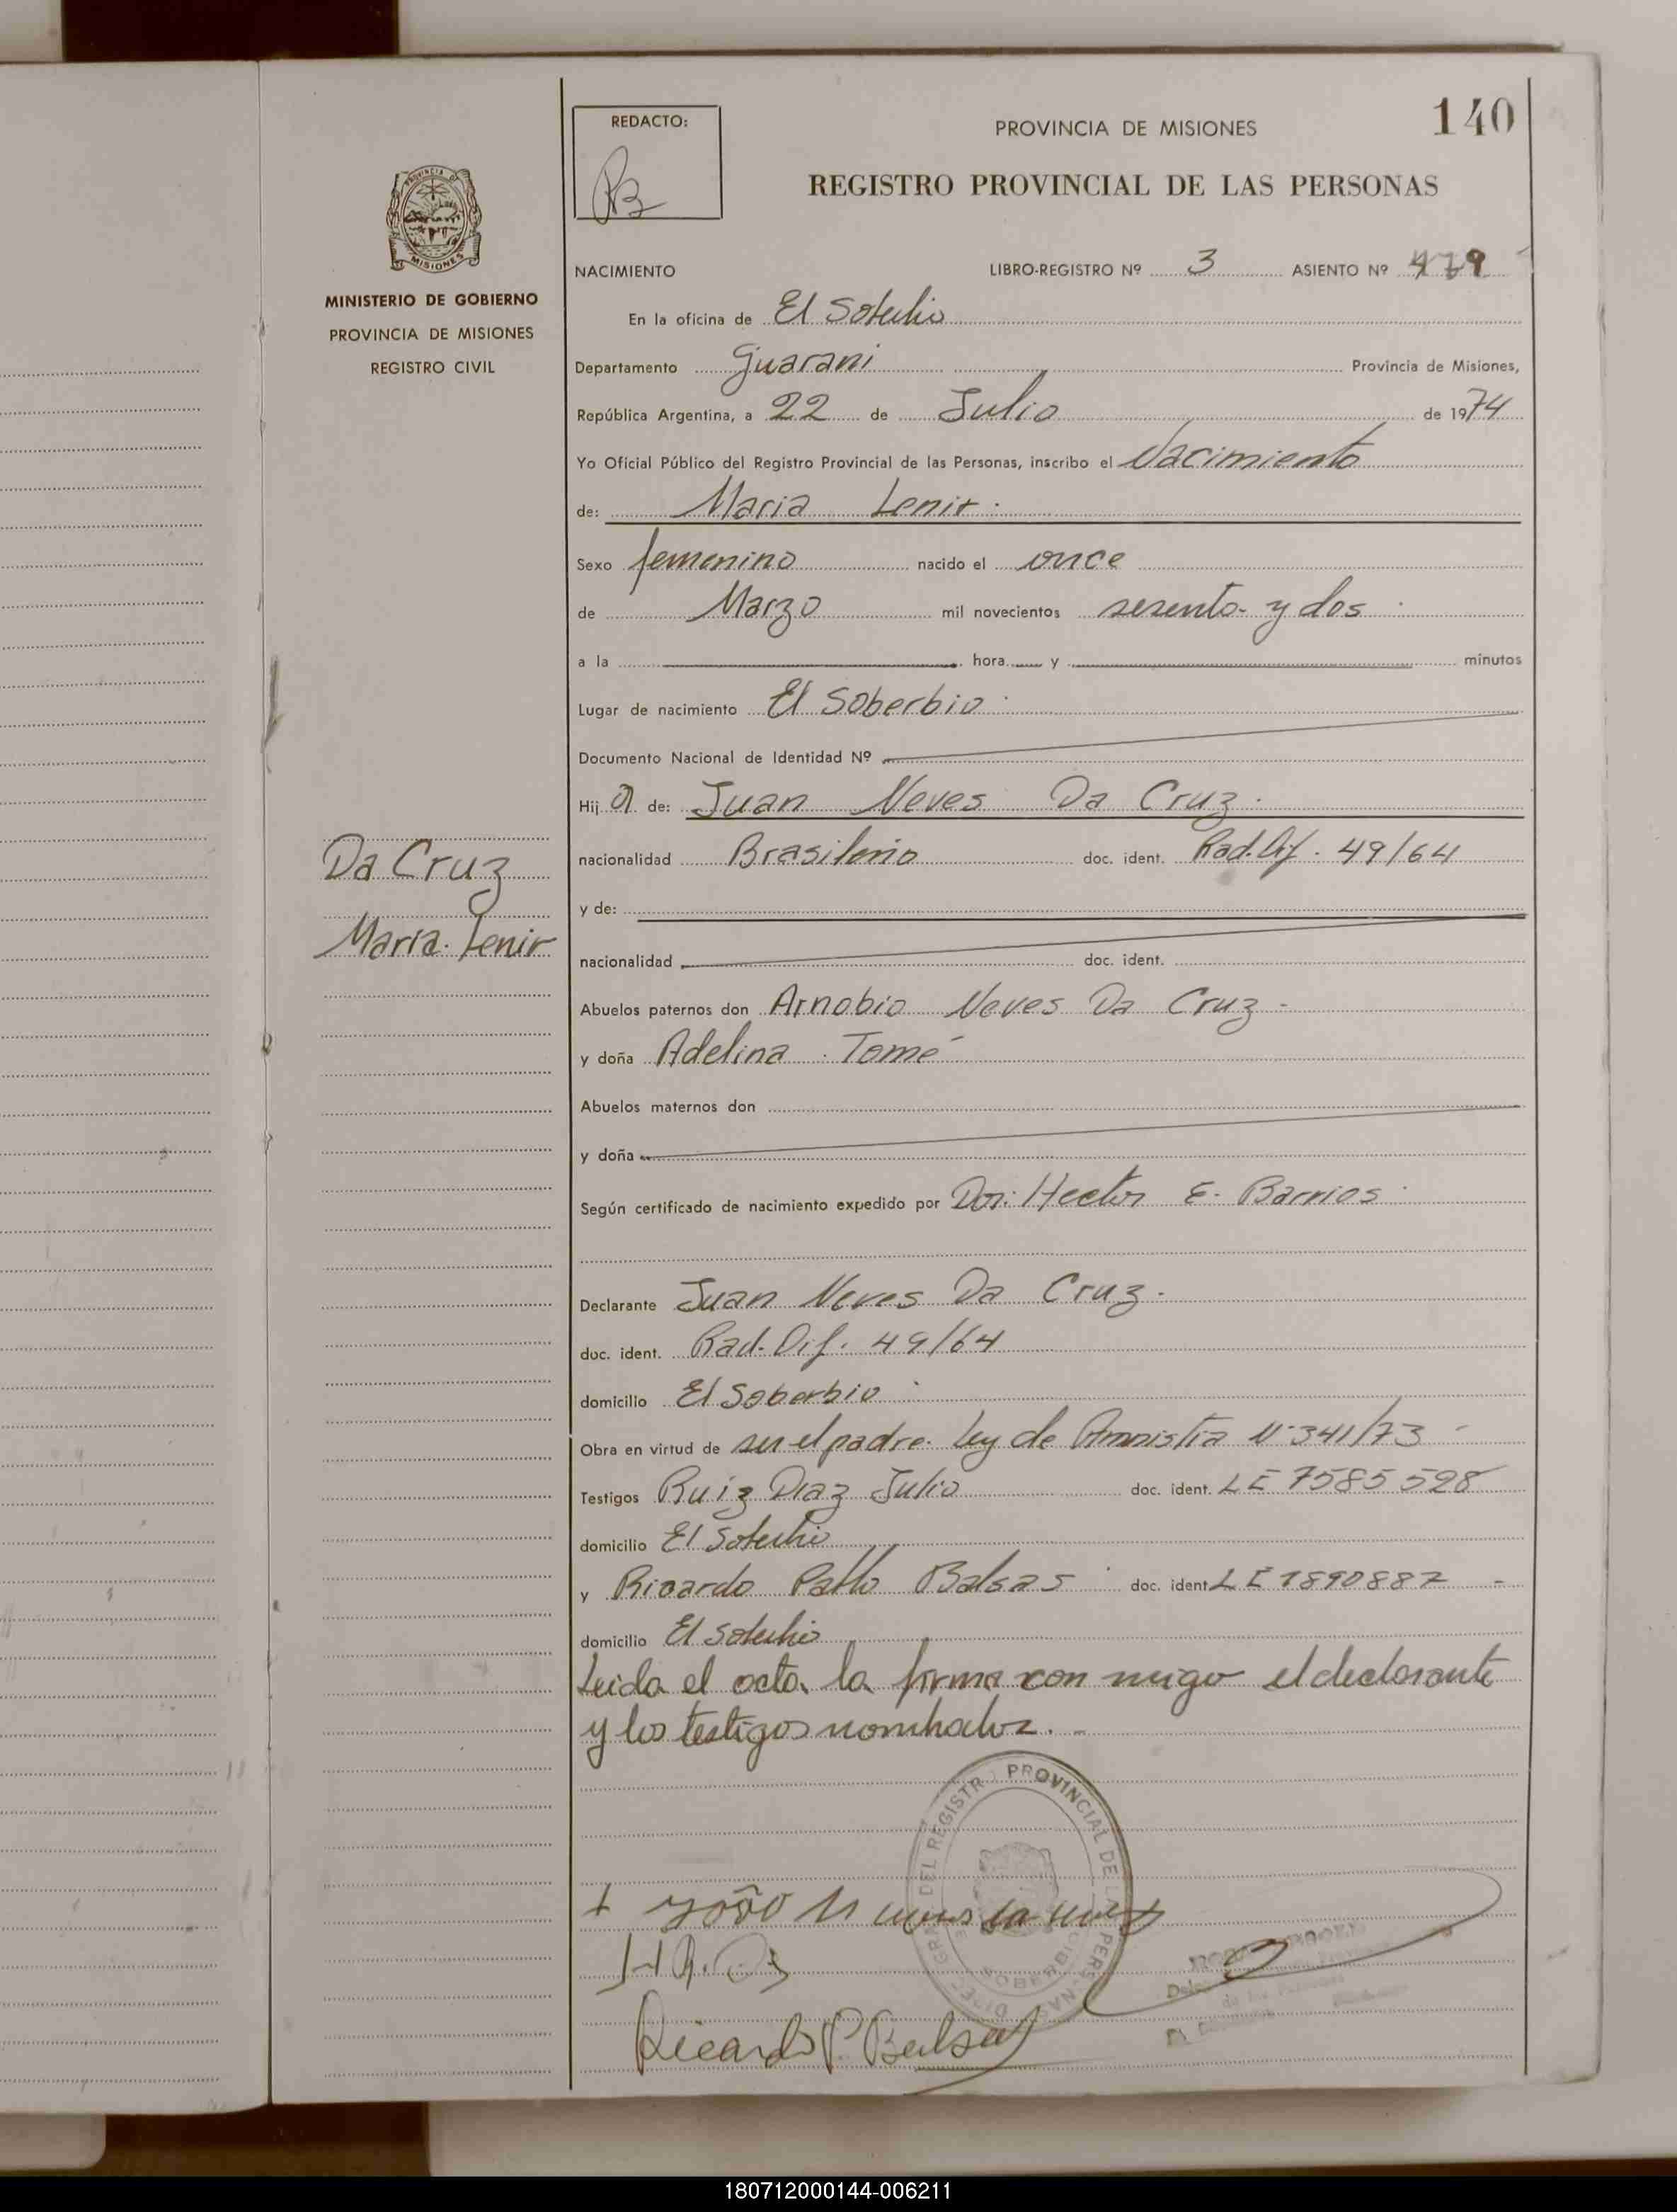 140
REDACTO:
PROVINCIA DE MISIONES
REGISTRO PROVINCIAL DE LAS PERSONAS
MINISTERIO DE GOBIERNO
PROVINCIA DE MISIONES
REGISTRO CIVIL
NACIMIENTO LIBRO-REGISTRO Nº 3 ASIENTO Nº 479
En la oficina de El Soberbio
Departamento Guarani Provincia de Misiones,
República Argentina, a 22 de Julio de 1974
Yo Oficial Público del Registro Provincial de las Personas, inscribo el Nacimiento
de: Maria Lenir.
Sexo femenino nacido el once
de Marzo mil novecientos sesenta y dos
a la hora y minutos
Lugar de nacimiento El Soberbio
Documento Nacional de Identidad Nº
Hij a de: Juan Neves Da Cruz.
nacionalidad Brasileño doc. ident. Rad. Dif. 49/64
y de:
Da Cruz
Maria Lenir
nacionalidad doc. ident.
Abuelos paternos don Arnobio Neves Da Cruz-
y doña Adelina Tomé
Abuelos maternos don
y doña
Según certificado de nacimiento expedido por Dor: Hector E. Barrios
Declarante Juan Neves Da Cruz.
doc. ident. Rad. Dif. 49/64
domicilio El Soberbio
Obra en virtud de ser el padre. Ley de Amnistia Nº 341/73
Testigos Ruiz Diaz Julio doc. ident. LE 7585528
domicilio El Soberbio
y Ricardo Pablo Balsas doc. ident LE 1890887 -
domicilio El Soberbio
Leida el acta, la firma con migo el declarante
y los testigos nombrados. -
PROVINCIAL DE
SOBERBIO
Ricardo P. Balsas
180712000144-006211